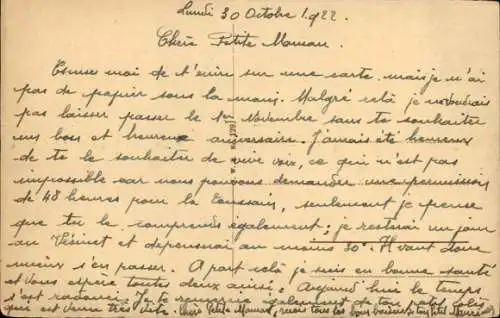 Lundi 30 Octobre 1922.
Chère Petite Maman.
Excuse moi de t'écrire sur une carte, mais je n'ai
pas de papier sous la main. Malgré celà je ne voudrais
pas laisser passer le 1er Novembre sans te souhaiter
un bon et heureux anniversaire. J'amais été heureux
de te le souhaiter de vive voix, ce qui n'est pas
impossible car nous pouvons demander une permission
de 48 heures pour la Toussain, seulement je pense
que tu le comprends également; je resterai un jour
au Vésinet et dépenserai au moins 30f. Il vaut donc
mieux s'en passer. A part celà je suis en bonne santé
et vous espère toutes deux ainsi. Aujourd'hui le temps
s'est radouci. Je te remercie également de ton petit colis
qui est venu très vite. Chère Petite Maman, reçois tous les bons baisers de ton petit